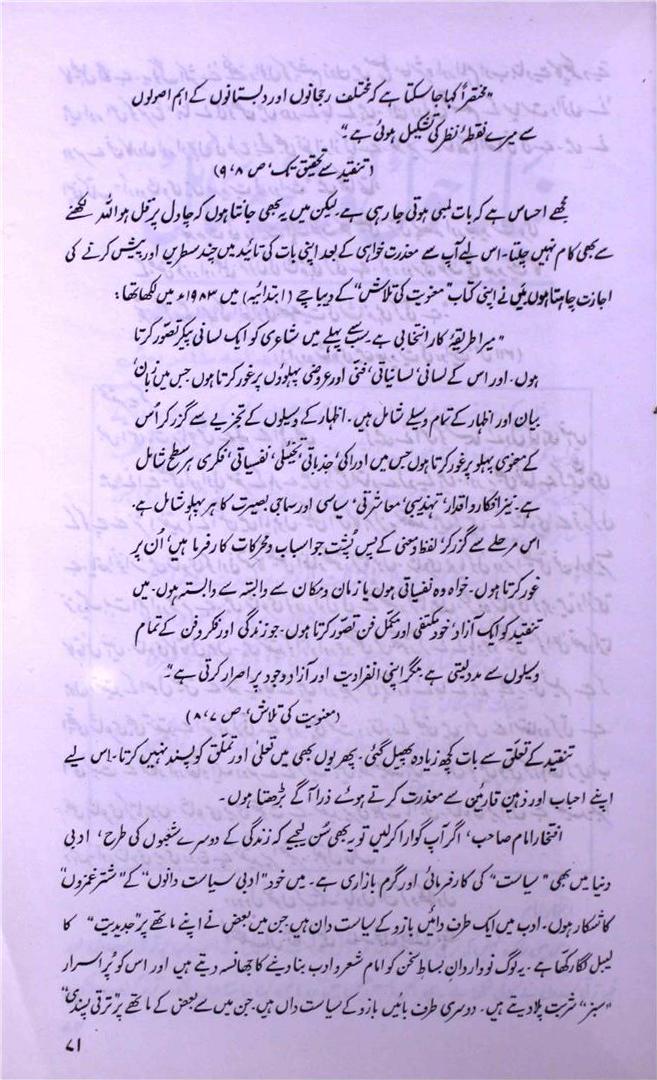 "مختصراً کہا جا سکتا ہے کہ مختلف رجحانوں اور دبستانوں کے اہم اصولوں
سے میرے نقطۂ نظر کی تشکیل ہوئی ہے۔"
(تنقید سے تحقیق تک، ص ۸، ۹)
مجھے احساس ہے کہ بات لمبی ہوتی جا رہی ہے۔ لیکن میں یہ بھی جانتا ہوں کہ چاول پر قل ہو اللہ لکھنے
سے بھی کام نہیں چلتا۔ اس لیے آپ سے معذرت خواہی کے بعد اپنی بات کی تائید میں چند سطریں اور پیش کرنے کی
اجازت چاہتا ہوں میں نے اپنی کتاب "معنویت کی تلاش" کے دیباچے (ابتدائیہ) میں ۱۹۸۳ء میں لکھا تھا:
"میرا طریقۂ کار انتخابی ہے۔ سب سے پہلے میں شاعری کو ایک لسانی پیکر تصور کرتا
ہوں۔ اور اس کے لسانی، لسانیاتی، فنی اور عروضی پہلوؤں پر غور کرتا ہوں جس میں زبان،
بیان اور اظہار کے تمام وسیلے شامل ہیں۔ اظہار کے وسیلوں کے تجزیے سے گزر کر اُس
کے معنوی پہلو پر غور کرتا ہوں جس میں ادراکی، جذباتی، تخیلی، نفسیاتی، فکری ہر سطح شامل
ہے۔ نیز افکار و اقدار، تہذیبی، معاشرتی، سیاسی اور سماجی بصیرت کا ہر پہلو شامل ہے۔
اس مرحلے سے گزر کر، لفظ و معنی کے پس پُشت جو اسباب و محرکات کار فرما ہیں، اُن پر
غور کرتا ہوں۔ خواہ وہ نفسیاتی ہوں یا زمان و مکان سے وابستہ ہوں۔ میں
تنقید کو ایک آزاد، خود مکتفی اور مکمل فن تصور کرتا ہوں۔ جو زندگی اور فکر و فن کے تمام
وسیلوں سے مدد لیتی ہے مگر اپنی انفرادیت اور آزاد وجود پر اصرار کرتی ہے"۔
(معنویت کی تلاش، ص ۷، ۸)
تنقید کے تعلق سے بات کچھ زیادہ پھیل گئی۔ پھر یوں بھی میں تعلّی اور تملّق کو پسند نہیں کرتا۔ اس لیے
اپنے احباب اور ذہین قارئین سے معذرت کرتے ہوئے ذرا آگے بڑھتا ہوں۔
افتخار امام صاحب، اگر آپ گوارا کر لیں تو یہ بھی سُن لیجیے کہ زندگی کے دوسرے شعبوں کی طرح، ادبی
دنیا میں بھی "سیاست" کی کار فرمائی اور گرم بازاری ہے۔ میں خود "ادبی سیاست دانوں" کے "شتر غمزوں"
کا شکار ہوں۔ ادب میں ایک طرف دائیں بازو کے سیاست دان ہیں جن میں بعض نے اپنے ماتھے پر "جدیدیت" کا
لیبل لگا رکھا ہے۔ یہ لوگ نو واردانِ بساطِ سخن کو امام شعر و ادب بنا دینے کا جھانسہ دیتے ہیں اور اس کو پُر اسرار
"سبز" شربت پلا دیتے ہیں۔ دوسری طرف بائیں بازو کے سیاست داں ہیں۔ جن میں سے بعض کے ماتھے پر "ترقی پسندی"
۷۱